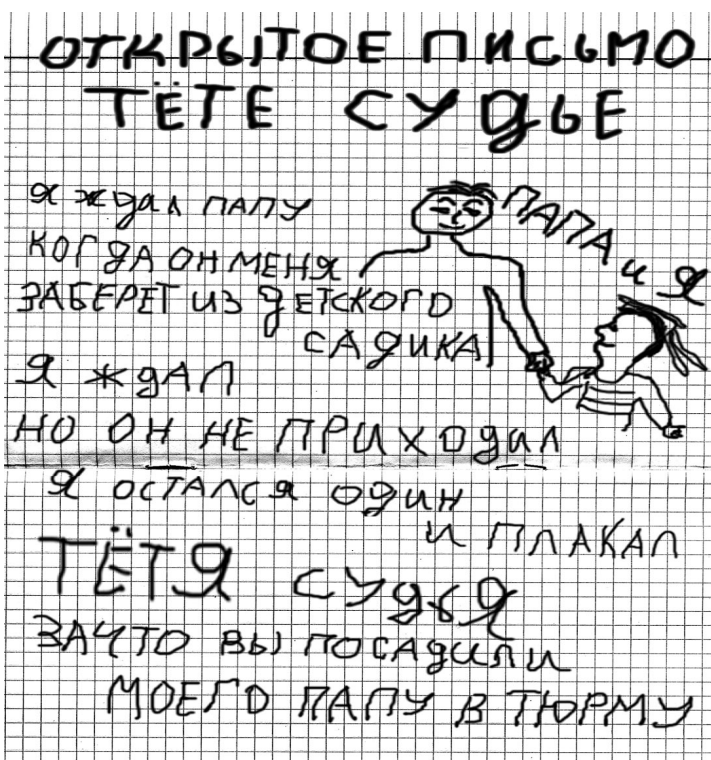 ОТКРЫТОЕ ПИСЬМО
ТЁТЕ СУДЬЕ
Я ЖДАЛ ПАПУ
КОГДА ОН МЕНЯ
ЗАБЕРЕТ ИЗ ДЕТСКОГО
САДИКА
ПАПА и Я
Я ЖДАЛ
НО ОН НЕ ПРИХОДИЛ
Я ОСТАЛСЯ ОДИН
И ПЛАКАЛ
ТЁТЯ СУДЬЯ
ЗАЧТО ВЫ ПОСАДИЛИ
МОЕГО ПАПУ В ТЮРМУ